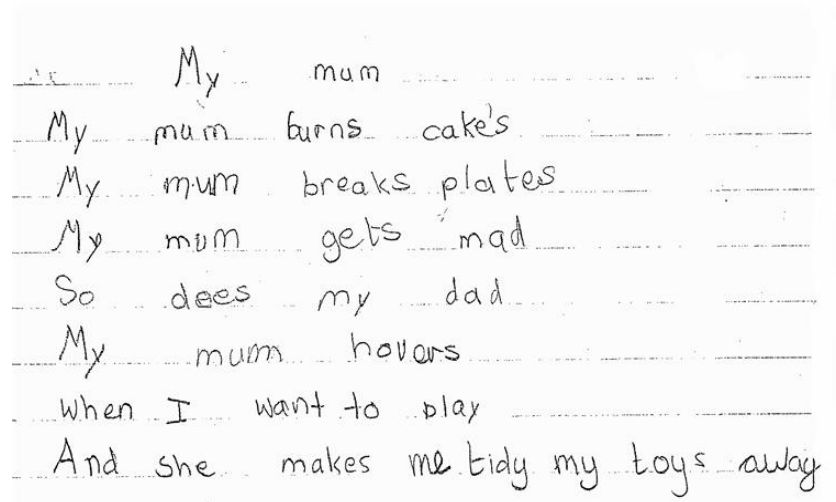 My mum
My mum burns cake's
My mum breaks plates
My mum gets mad
So dees my dad
My mum hovers
when I want to play
And she makes me tidy my toys away